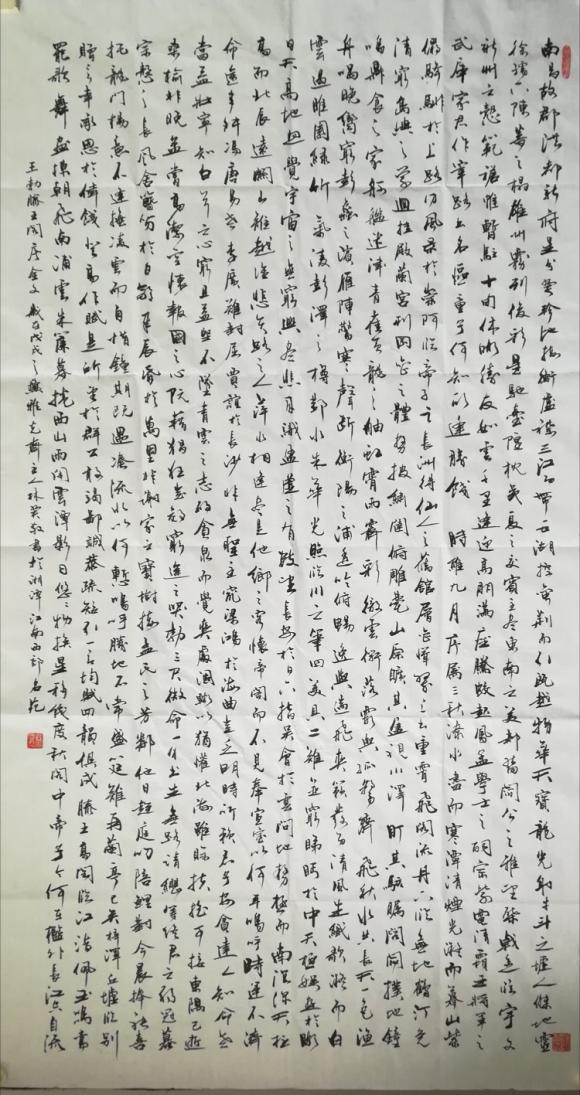 南昌故郡洪都新府星分翼轸地接衡庐襟三江而带五湖控蛮荆而引瓯越物华天宝龙光射牛斗之墟人杰地灵
徐孺下陈蕃之榻雄州雾列俊彩星驰台隍枕夷夏之交宾主尽东南之美都督阎公之雅望棨戟遥临宇文
新州之懿范襜帷暂驻十旬休暇胜友如云千里逢迎高朋满座腾蛟起凤孟学士之词宗紫电清霜王将军之
武库家君作宰路出名区童子何知躬逢胜饯 时维九月序属三秋潦水尽而寒潭清烟光凝而暮山紫
俨骖騑于上路访风景于崇阿临帝子之长洲得仙人之旧馆层峦耸翠上出重霄飞阁流丹下临无地鹤汀凫
渚穷岛屿之萦回桂殿兰宫列冈峦之体势披绣闼俯雕甍山原旷其盈视川泽盱其骇瞩闾阎扑地钟
鸣鼎食之家舸舰迷津青雀黄龙之舳虹销雨霁彩彻云衢落霞与孤鹜齐飞秋水共长天一色渔
舟唱晚响穷彭蠡之滨雁阵惊寒声断衡阳之浦遥吟俯畅逸兴遄飞爽籁发而清风生纤歌凝而白
云遏睢园绿竹气凌彭泽之樽邺水朱华光照临川之笔四美具二难并穷睇眄于中天极娱游于暇
日天高地迥觉宇宙之无穷兴尽悲来识盈虚之有数望长安于日下指吴会于云间地势极而南溟深天柱
高而北辰远关山难越谁悲失路之人萍水相逢尽是他乡之客怀帝阍而不见奉宣室以何年呜呼时运不济
命途多舛冯唐易老李广难封屈贾谊于长沙非无圣主窜梁鸿于海曲岂乏明时所赖君子安贫达人知命老
当益壮宁知白首之心穷且益坚不坠青云之志酌贪泉而觉爽处涸辙以犹欢北海虽赊扶摇可接东隅已逝
桑榆非晚孟尝高洁空怀报国之心阮籍猖狂岂效穷途之哭勃三尺微命一介书生无路请缨等终君之弱冠慕
宗悫之长风舍簪笏于百龄奉晨昏于万里非谢家之宝树接孟氏之芳邻他日趋庭叨陪鲤对今晨捧袂喜
托龙门杨意不逢抚凌云而自惜钟期既遇奏流水以何惭呜呼胜地不常盛筵难再兰亭已矣梓泽丘墟临别
赠言幸承恩于伟饯登高作赋是所望于群公敢竭鄙诚恭疏短引一言均赋四韵俱成滕王高阁临江渚佩玉鸣鸾
罢歌舞画栋朝飞南浦云朱帘暮卷西山雨闲云潭影日悠悠物换星移几度秋阁中帝子今何在槛外长江空自流
王勃滕王阁序全文 岁在戊戌之 雅 斋主人林英 书于湘潭江南西邨名苑